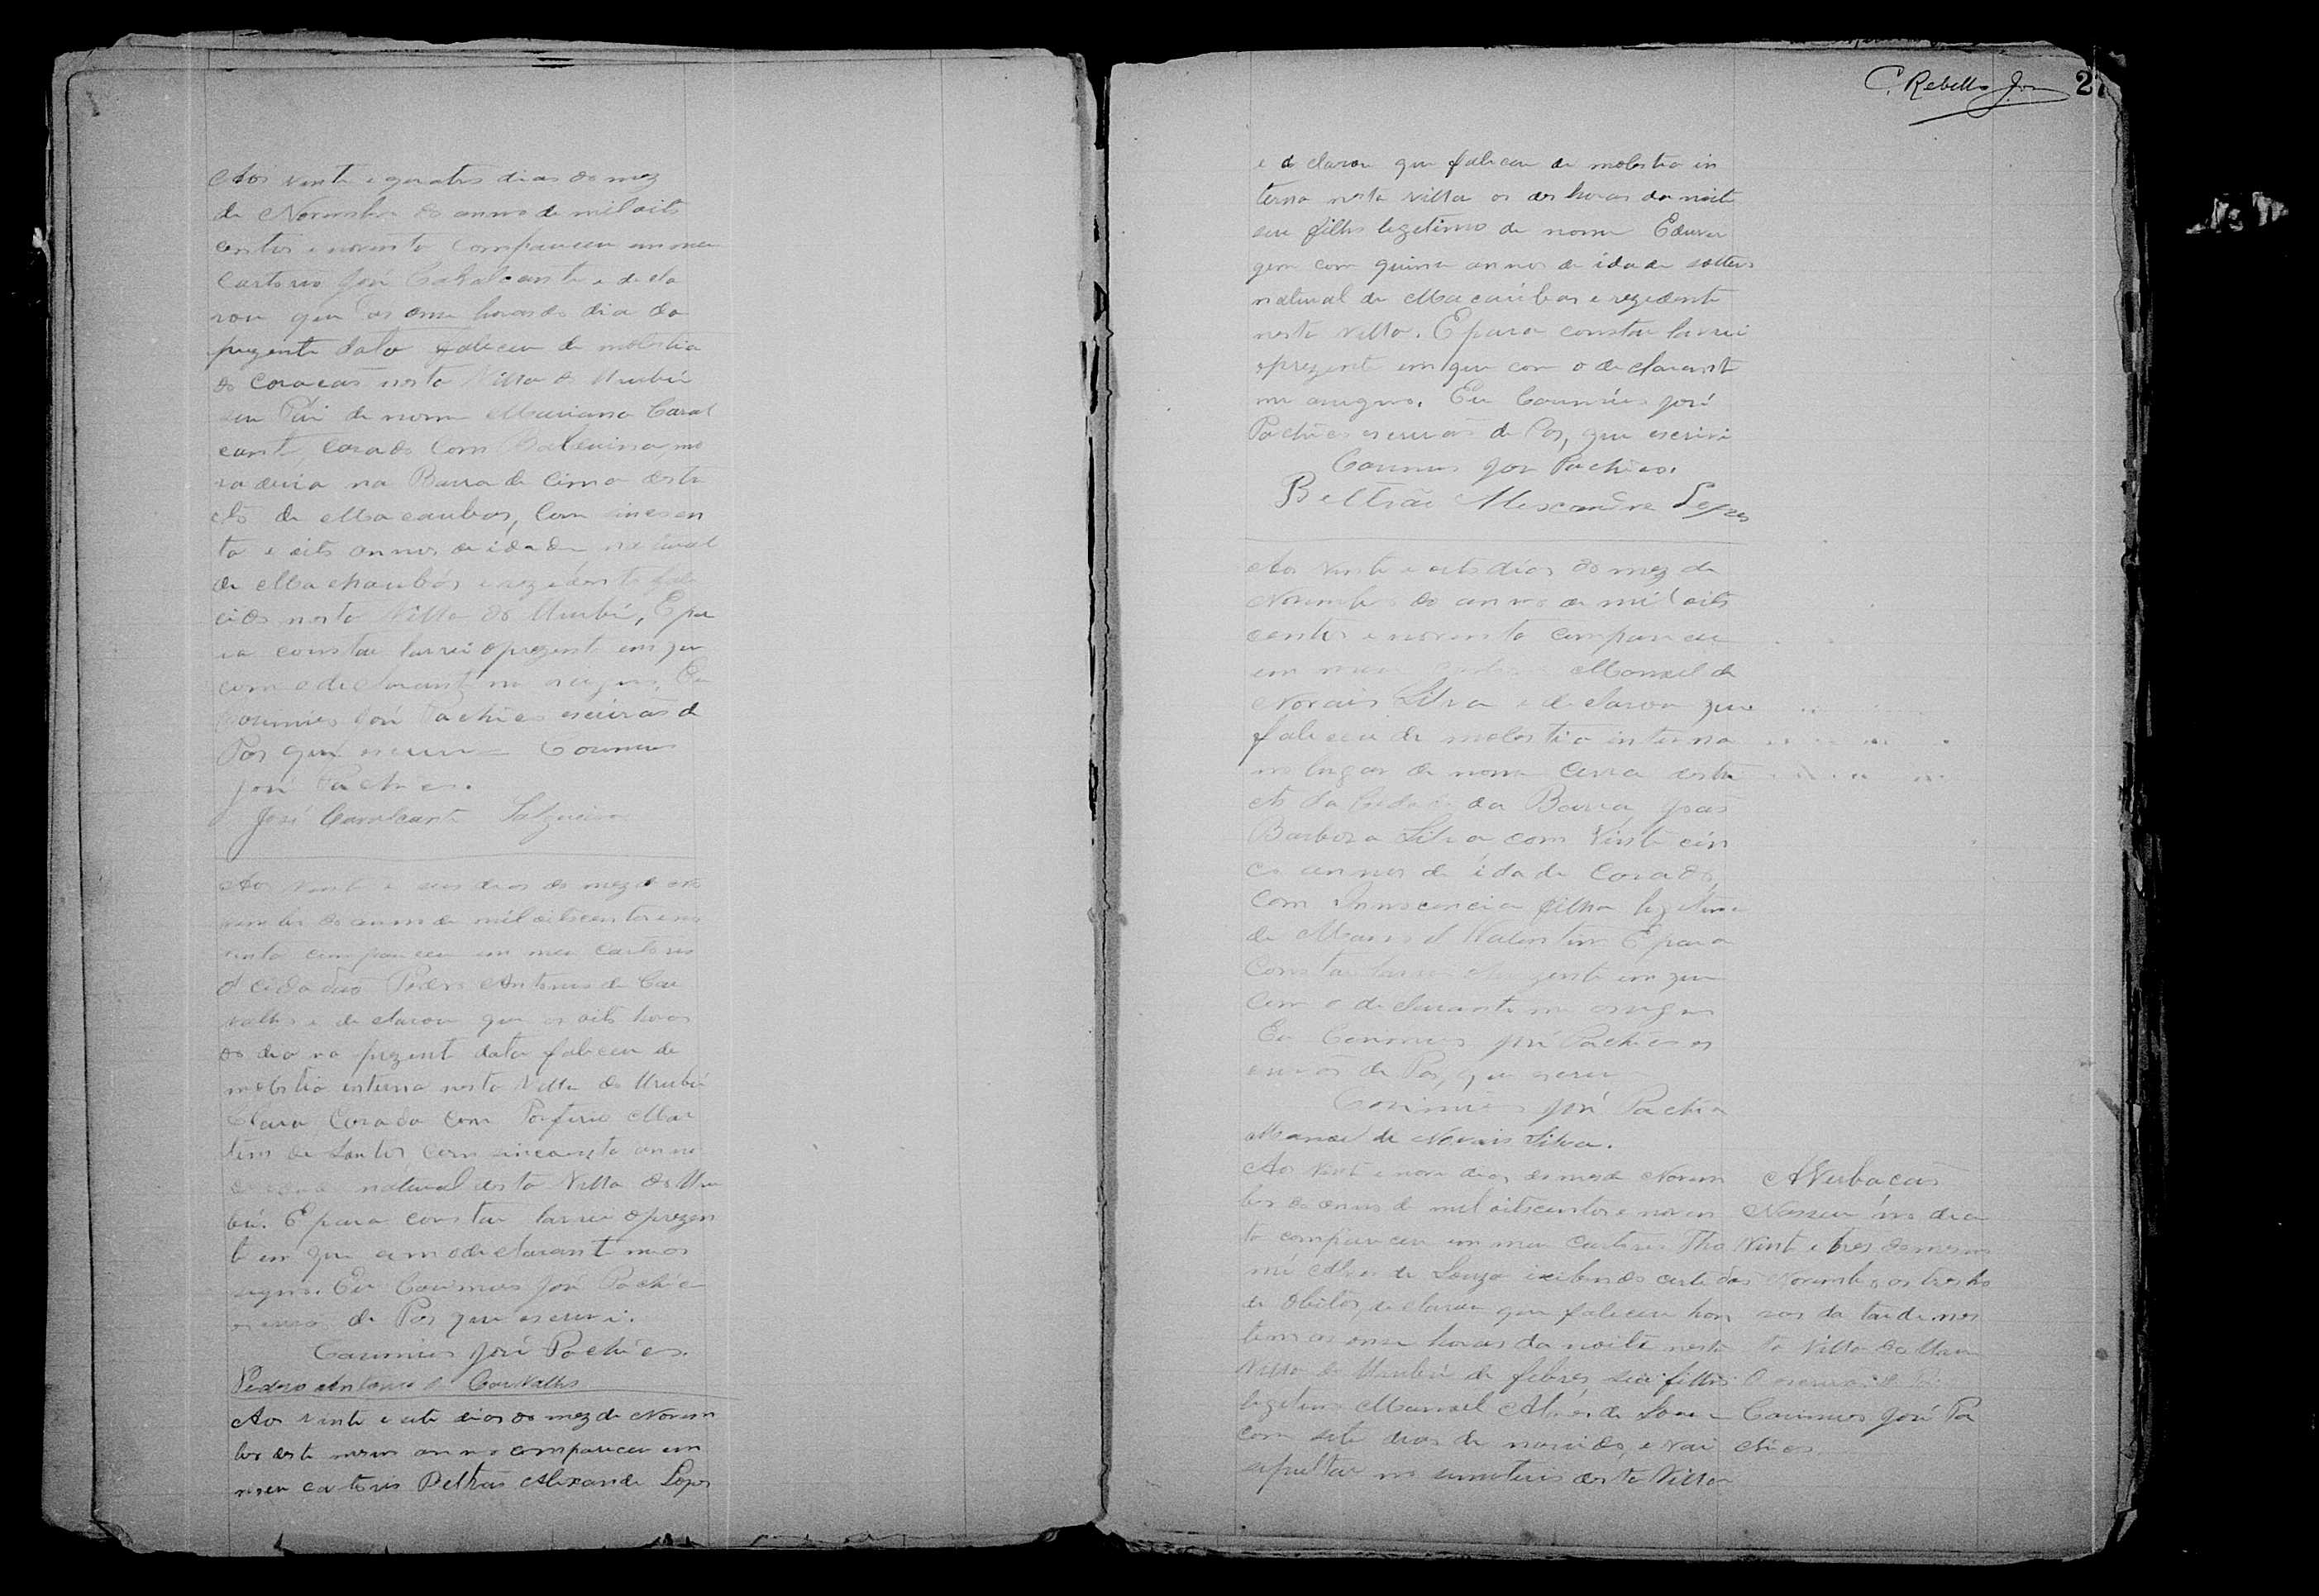 Aos vinte e quatro dias do mez
de Novembro do anno de mil oito
centos e noventa compareceu em meu
Cartorio José Cavalcante e decla
rou que as onse horas do dia da
prezente data faleceu de molestia
do coracão nesta Villa do Urubú
seu Pai de nome Mariano Caval
cante, casado com Balbuina, mo
radeira na Barra de Cima destri
cto de Macaubas, com sincoen
ta e oito annos de idade natural
de Machaubas e rezidente fale
cido nesta Villa do Urubú, E pa
ra constar lavrei o prezente em que
com o declarante me asigno. Eu
Casimiro José Pachêco escivão de
Pas que escrevi Casimiro
José Pachêco.
José Cavalcante Salgueiro
Aos vinte e seis dias do mez de No
vembro do anno de mil oitocentos e no
venta compareceu em meu cartorio
o cidadão Pedro Antonio de Car
valho e declarou que as oito horas
do dia na prezente data faleceu de
molestia interna nesta Villa do Urubú
Clara, Casada com Porfirio Mar
tins de Santos com sincoenta anno
de idade natural desta Villa do Uru
bú. E para constar lavrei o prezen
te em que com o declarante me as
signo. Eu Casimiro José Pachêco
escrivão de Pas que escrevi.
Casimiro José Pachêco.
Pedro Antonio de Carvalho
Aos vinte e sete dias do mez de Novem
bro deste mesmo anno compareceu em
meu cartorio Beltrão Alexandre Lopes
C. Rebello Jor 27
e declarou que faleceu de molestia in
terna nesta villa as des horas da noite
seu filho legitimo de nome
gem com quinse annos de idade solteiro
natural de Macaúbas e rezidente
nesta villa. E para constar lavrei
o prezente em que com o declarante
me asigno. Eu Casimiro José
Pachêco escrivão de Pas, que escrivi
Casimiro José Pachêco.
Beltrão Alexandre Lopes
Aos vinte e oito dias do mez de
Novembro do anno de mil oito
centos e noventa compareceu
em meu cartorio Manoel de
Novais Silva e declarou que
faleceu de molestia interna
no lugar de nome Cerca destri
cto da Cidade da Barra, João
Barboza Silva com Vinte cin
co annos de idade Casado,
com Innocencia filha legitima
de Manoel Valentim E para
Constar lavrei o prezente em que
Com o declarante me asigno
Eu Casimiro José Pachêco es
crivão de Pas, que escrevi
Casimiro José Pachêco
Manoel de Novais Silva.
Aos vinte e nove dias do mez de Novem
bro do anno de mil oitocentos e noven
ta compareceu em meu cartorio Tho
mé Alves de Souza exibindo certidão
de obitos, declarou que faleceu hon
tem as onse horas da noite nesta
Villa do Urubú de febres seu filho
legitimo Manoel Alves de Souza
com sete dias de nascido, e vai
sepultar no semeterio desta Villa
AVerbacão
Nasceu no dia
vinte e tres do mesmo
Novembro as tres ho
ras da tarde nes
ta Villa do Urubú
O escrivão de Pas
Casimiro José Pa
chêco.